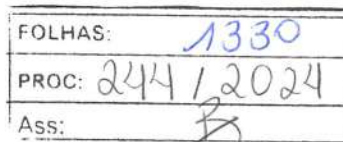 FOLHAS: 1330
PROC: 244 / 2024
Ass: